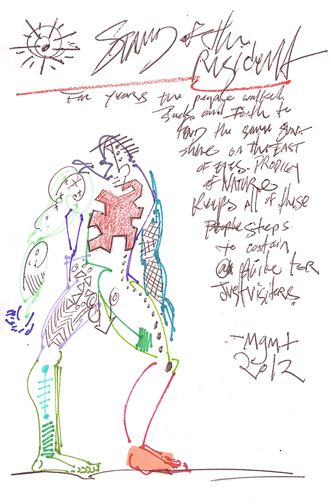 of the
Resident
For years the people walked
Back and Forth to
the same sun
shine on the East
of Eyes. Prodigy
of Natures
Keeps all of these
People steps
to contain
a for
Just visitors
-Mgmt
2012